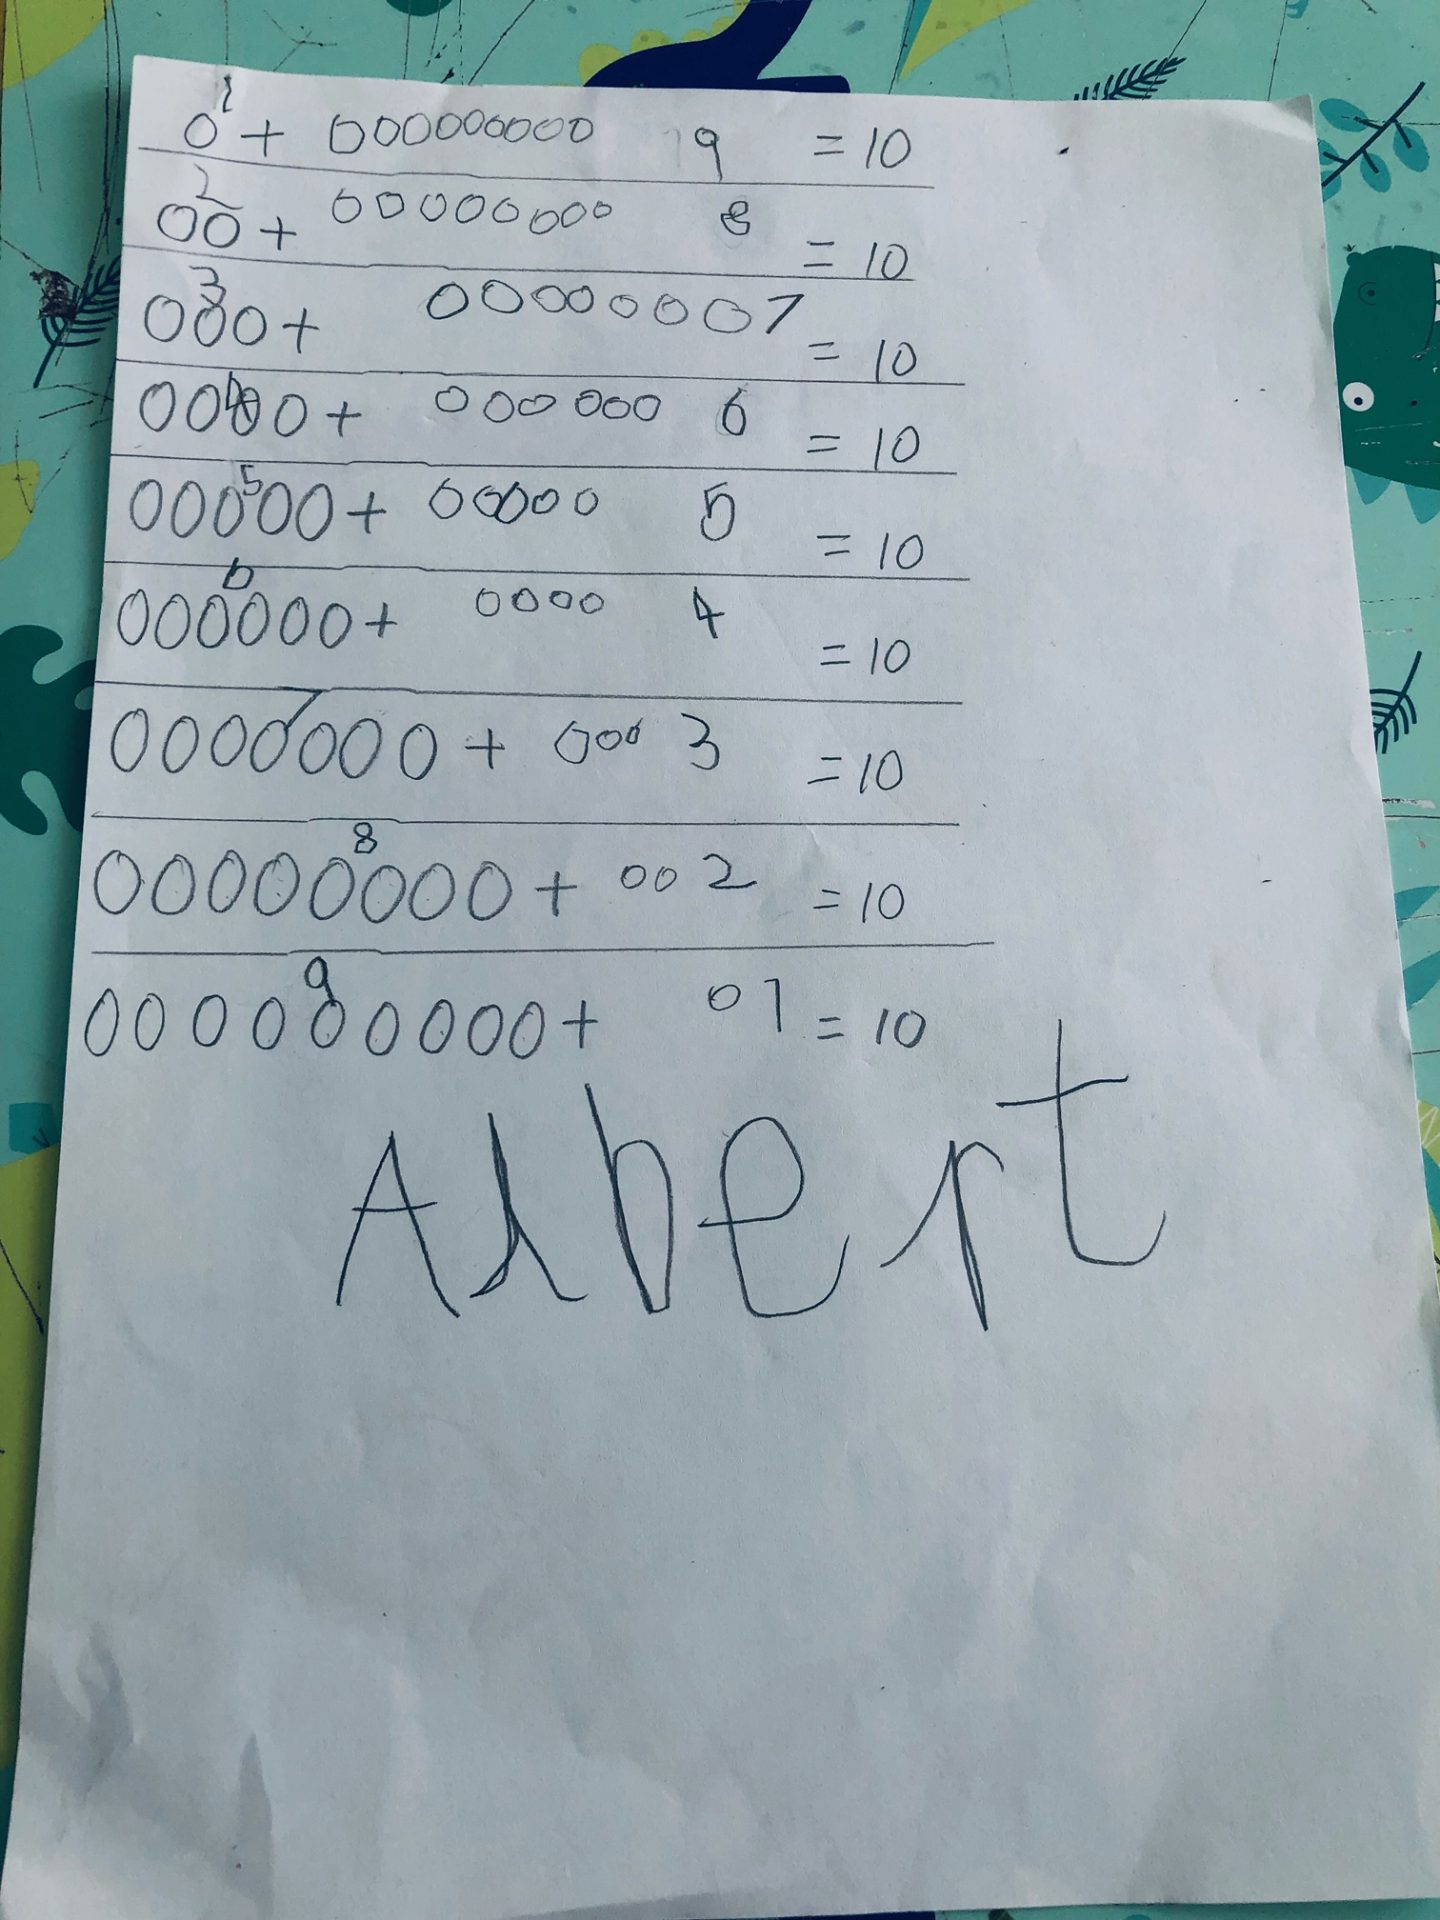 1
0 + 000000000 9 = 10
2
00 + 00000000 8 = 10
3
000 + 0000000 7 = 10
4
0000 + 000000 6 = 10
5
00000 + 00000 5 = 10
6
000000 + 0000 4 = 10
7
0000000 + 000 3 = 10
8
00000000 + 00 2 = 10
9
000000000 + 0 1 = 10
Albert